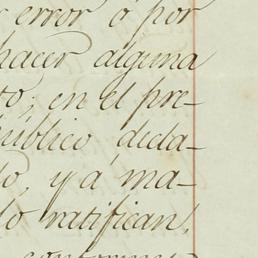 error ó por
hacer alguna
to, en el pre-
público decla-
do, y á ma-
lo ratifican,